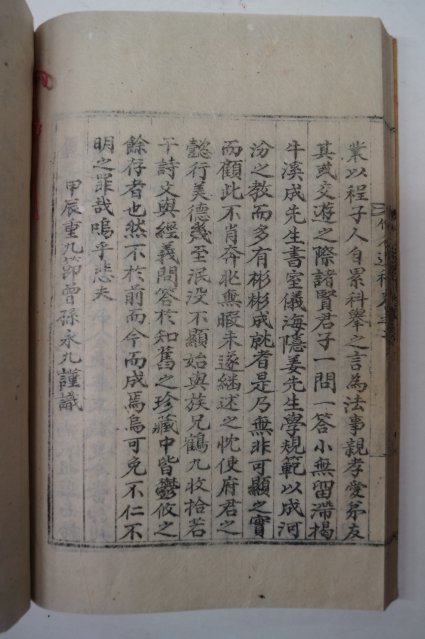 業以程子人自累科擧之言為法事親孝愛弟友
其或交遊之際諸賢君子一問一答小無留滯揭
牛溪成先生書室儀海隱姜先生學規範以成河
汾之敎而多有彬彬成就者是乃無非可顯之實
而顧此不肖奔北無暇未遂繼述之忱使府君之
懿行美德幾至泯没不顯始與族兄鶴九收拾若
干詩文與經義問答於知舊之珍藏中皆鬱攸之
餘存者也然不於前而今而成焉烏可免不仁不
明之罪哉嗚乎悲夫
甲辰重九節曾孫永九謹識